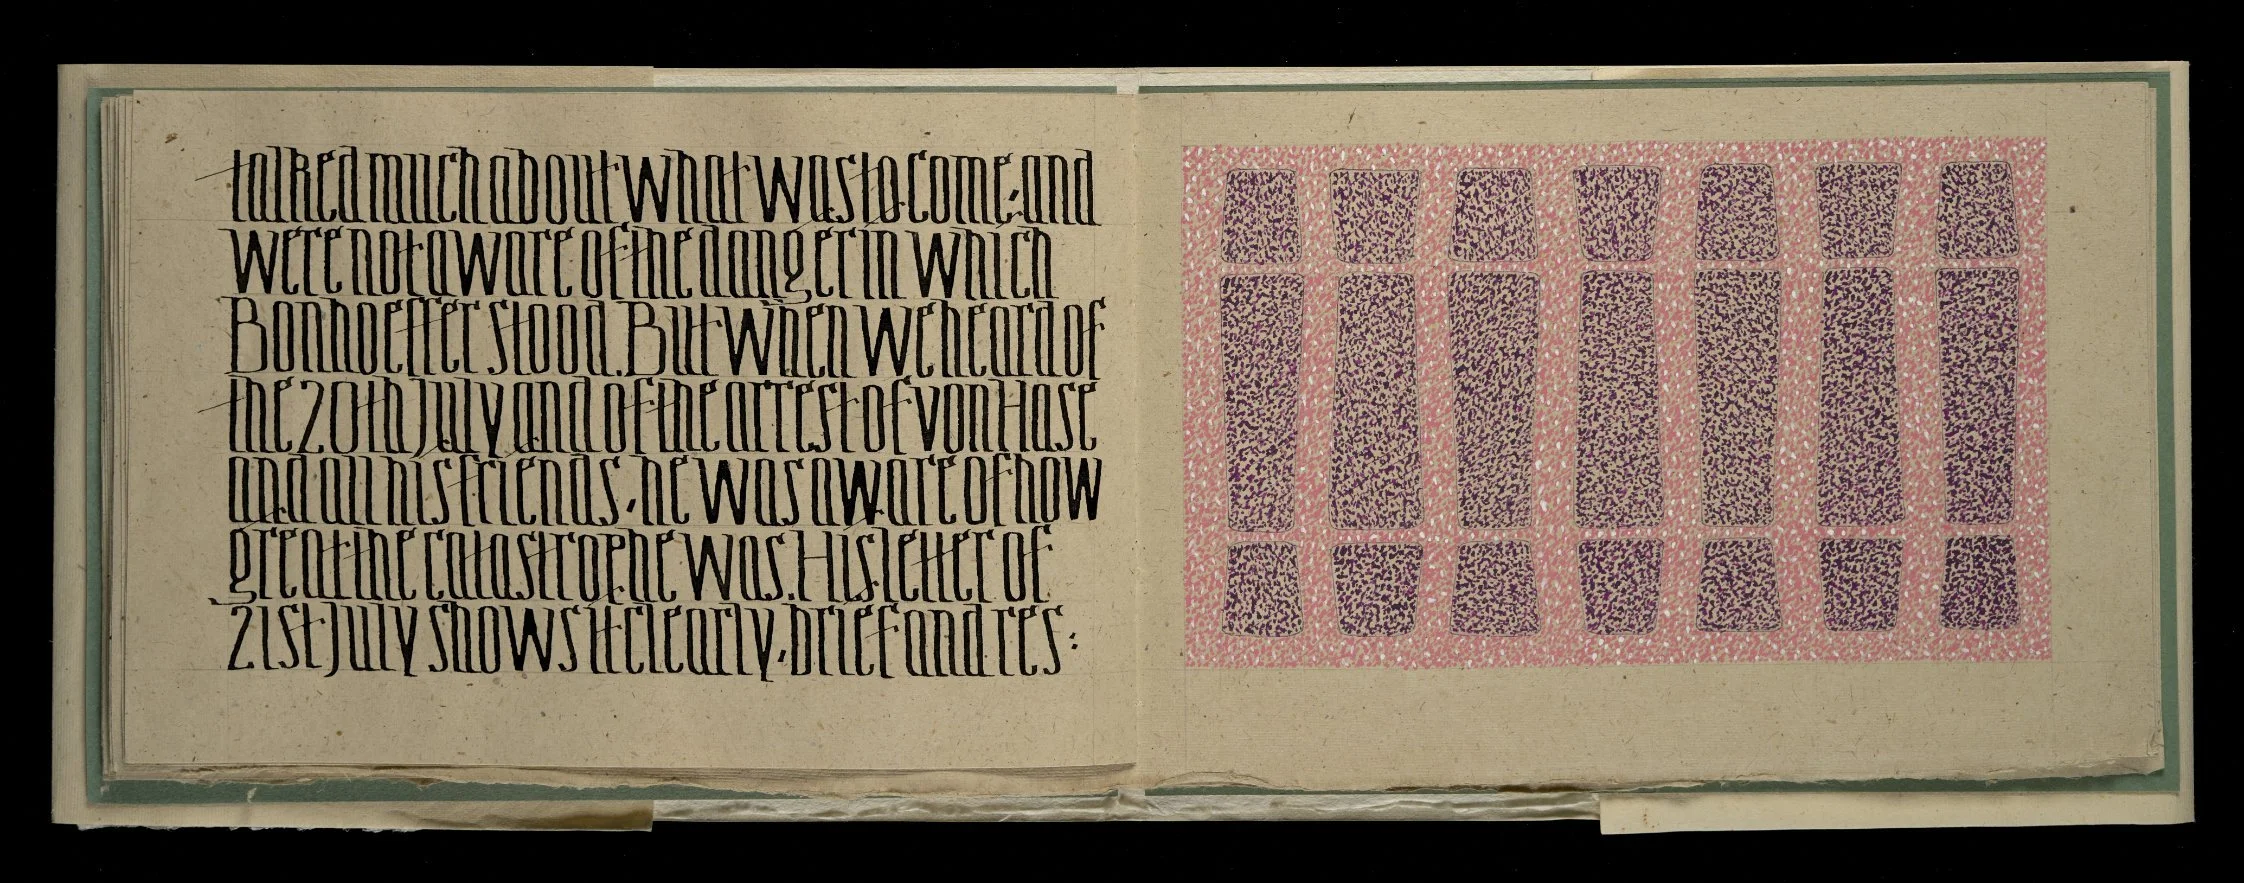 talked much about what was to come, and
were not aware of the danger in which
Bonhoeffer stood. But when we heard of
the 20th July and of the arrest of von Hase
and all his friends, he was aware of how
great the catastrophe was. His letter of
21st July shows it clearly, brief and res: